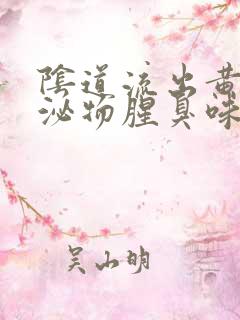 陰道流出黃
泌物腥臭味
吴山明